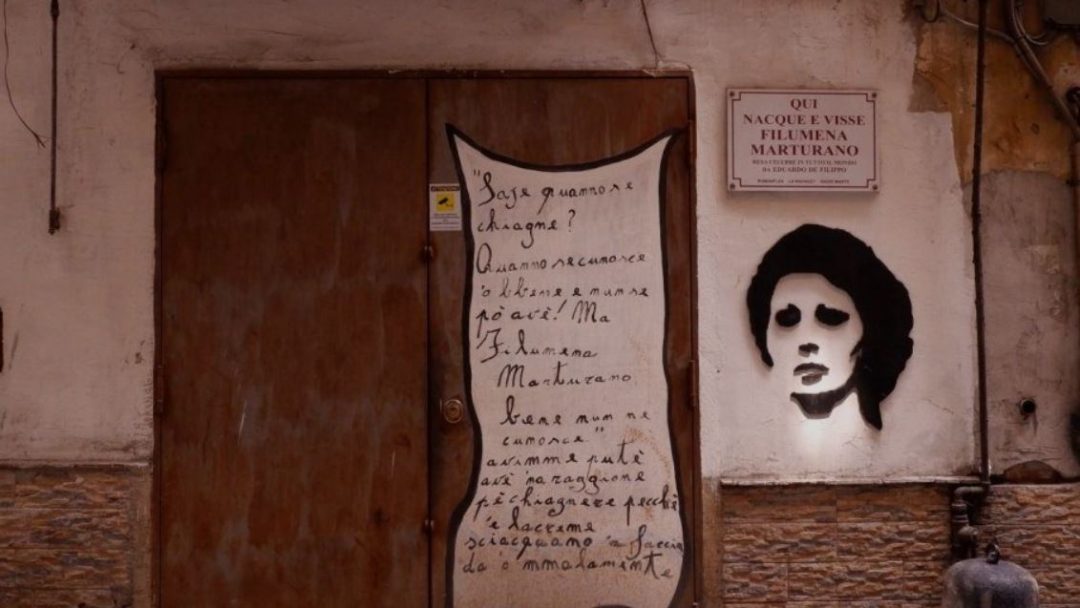 QUI
NACQUE E VISSE
FILUMENA
MARTURANO
RESA CELEBRE IN TUTTO IL MONDO
DA EDUARDO DE FILIPPO
"Saje quanno se
chiagne?
Quanno se cunosce
'o bbene e nun se
pò avè! Ma
Filumena
Marturano
bene nun ne
cunosce"
avimme putè
avè 'na raggione
pè chiagnere pecchè
'e lacreme
sciacquano 'a faccia
da 'o mmalamente